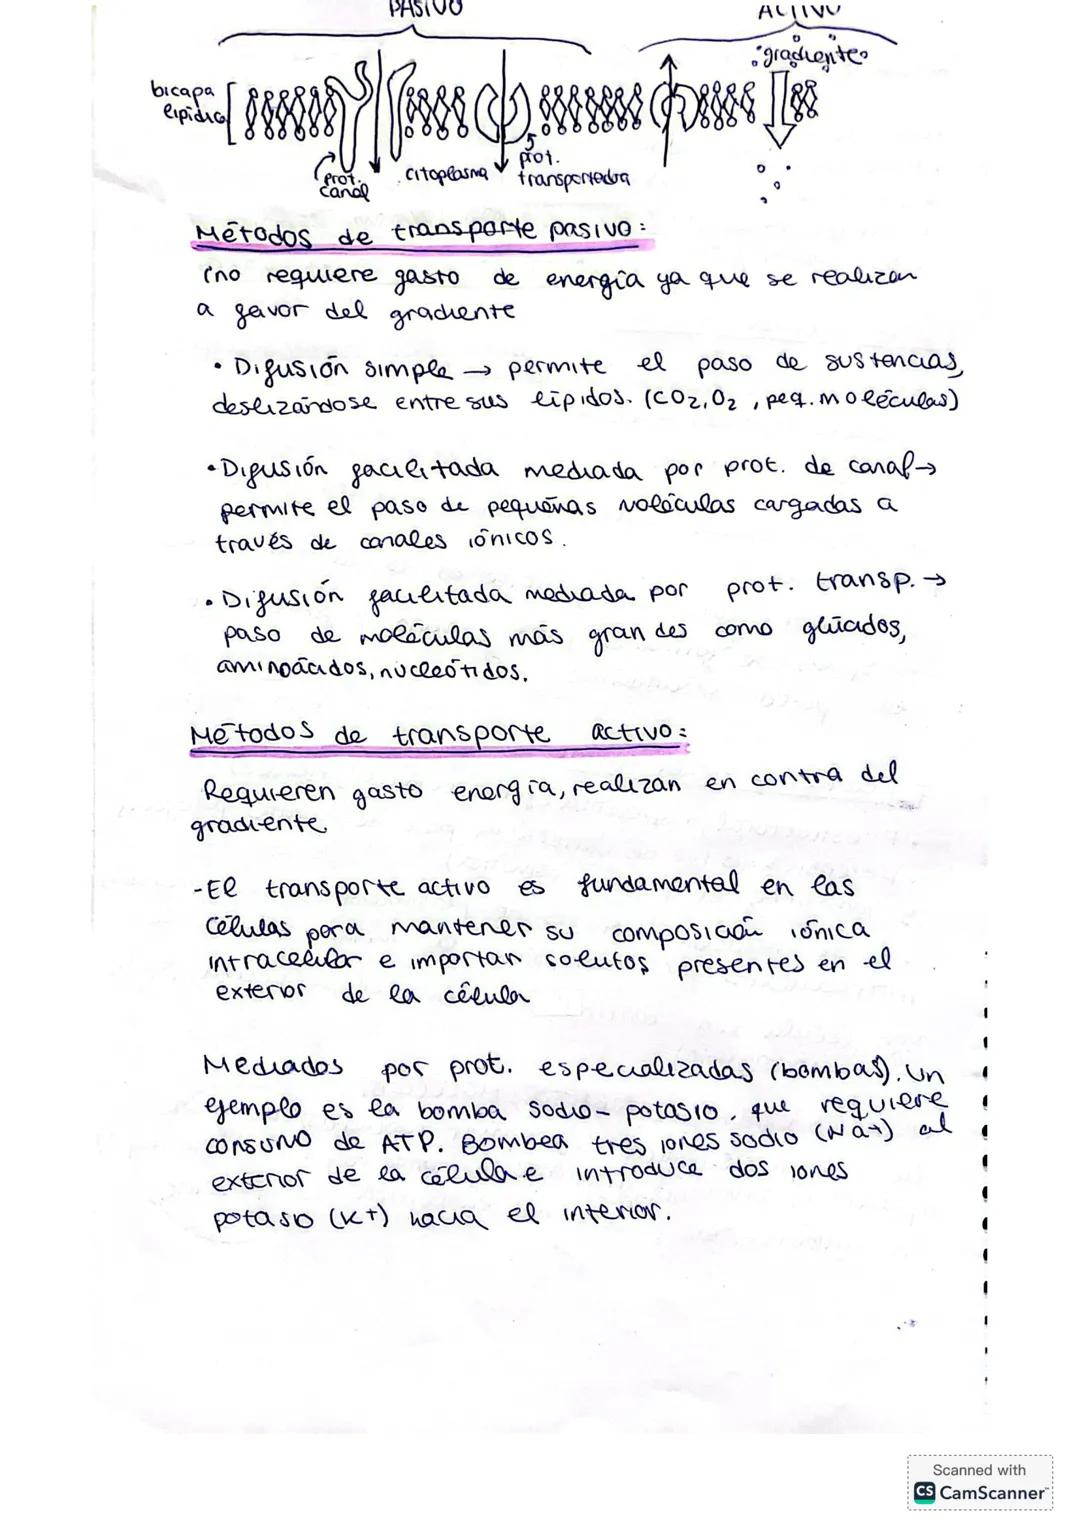 PASIVO
ACTIVO
gradiente
bicapa
lipídica
prot.
canal
citoplasma
prot.
transportadora
Métodos de transporte pasivo:
(no requiere gasto de energía ya que se realizan
a favor del gradiente
• Difusión simple → permite el paso de sustancias,
deslizándose entre sus lípidos. (CO2, O2, peq. moléculas)
• Difusión facilitada mediada por prot. de canal →
permite el paso de pequeñas moléculas cargadas a
través de canales iónicos.
• Difusión facilitada mediada por prot. transp. →
paso de moléculas más grandes como glúcidos,
aminoácidos, nucleótidos.
Métodos de transporte activo:
Requieren gasto energía, realizan en contra del
gradiente
-El transporte activo es fundamental en las
células para mantener su composición iónica
intracelular e importar solutos presentes en el
exterior de la célula
Mediados por prot. especializadas (bombas). Un
ejemplo es la bomba sodio-potasio, que requiere
consumo de ATP. Bombea tres iones sodio (Na+) al
exterior de la célula e introduce dos iones
potasio (K+) hacia el interior.
Scanned with
CS CamScanner